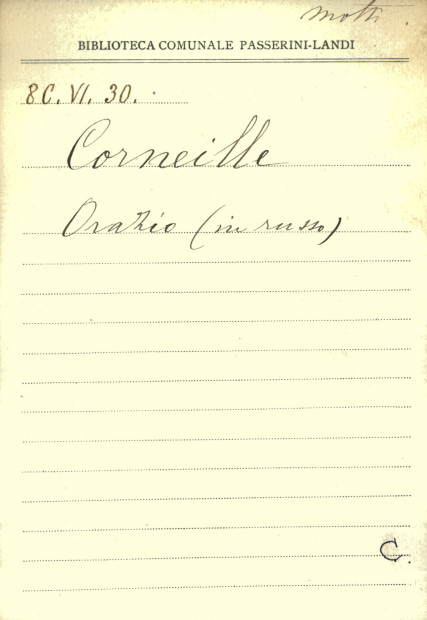 Motti
BIBLIOTECA COMUNALE PASSERINI-LANDI
8C. VI. 30.
Corneille
Orazio (in russo)
C.